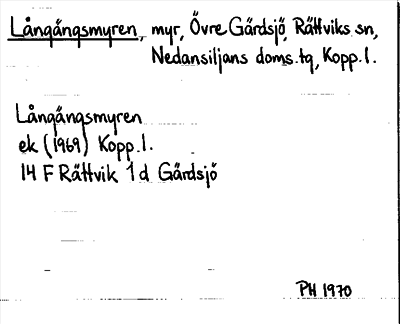 Långängsmyren, myr, Övre Gärdsjö, Rättviks sn,
Nedansiljans doms.tg, Kopp.l.
Långängsmyren
ek (1969) Kopp.l.
14 F Rättvik 1d Gärdsjö
PH 1970